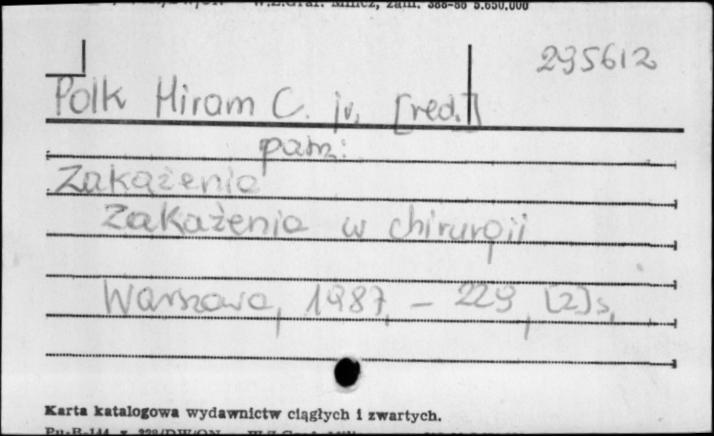 W.Z.Graf. Milicz, zam. 388-86 5.650.000
295612
Polk Hiram C. jr. [red.]
patrz:
Zakażenia
Zakażenia w chirurgii
Warszawa, 1987, – 229, [2] s,
Karta katalogowa wydawnictw ciągłych i zwartych.
Pu-B-144